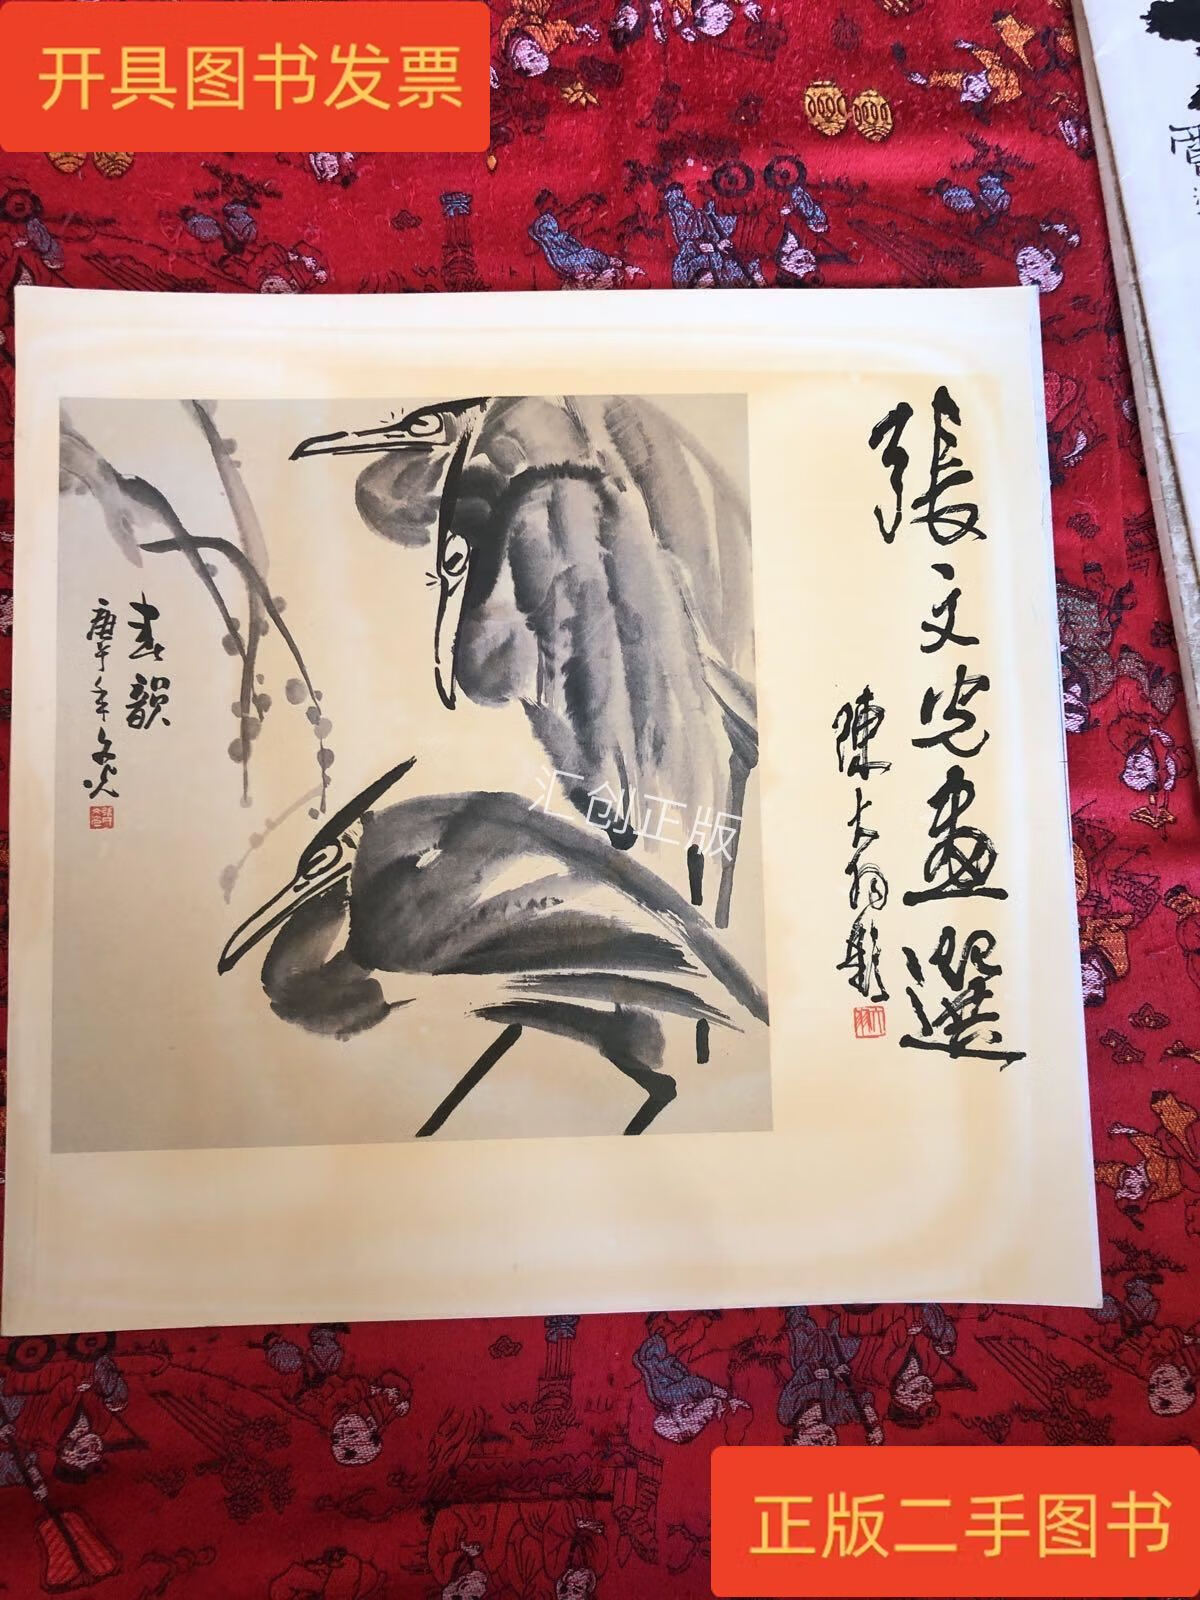 开具图书发票
張文光画選
陳大羽題
大羽
春韻
庚午年文光
汇创正版
正版二手图书